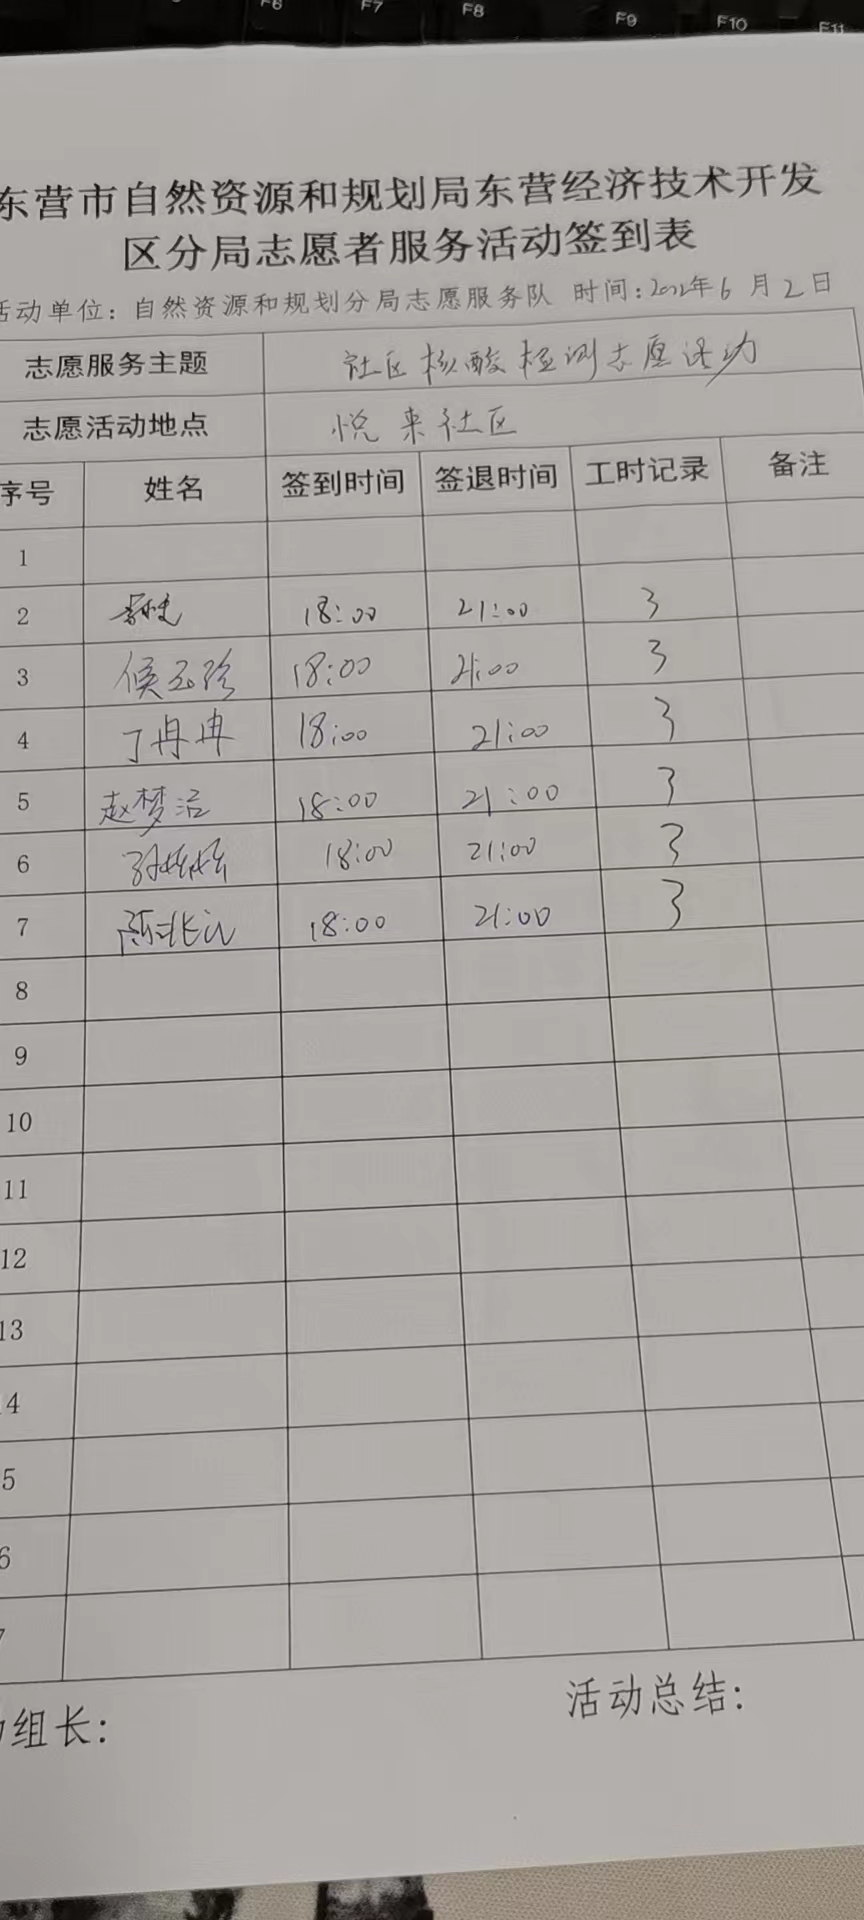 F6 F7 F8 F9 F10 F11
东营市自然资源和规划局东营经济技术开发
区分局志愿者服务活动签到表
活动单位：自然资源和规划分局志愿服务队 时间：2022年6月2日
志愿服务主题 社区核酸检测志愿活动
志愿活动地点 悦来社区
序号 姓名 签到时间 签退时间 工时记录 备注
1
2 18:00 21:00 3
3 侯玉珍 18:00 21:00 3
4 丁冉冉 18:00 21:00 3
5 赵梦洁 18:00 21:00 3
6 18:00 21:00 3
7 18:00 21:00 3
8
9
10
11
12
13
4
5
6
7
组长： 活动总结：